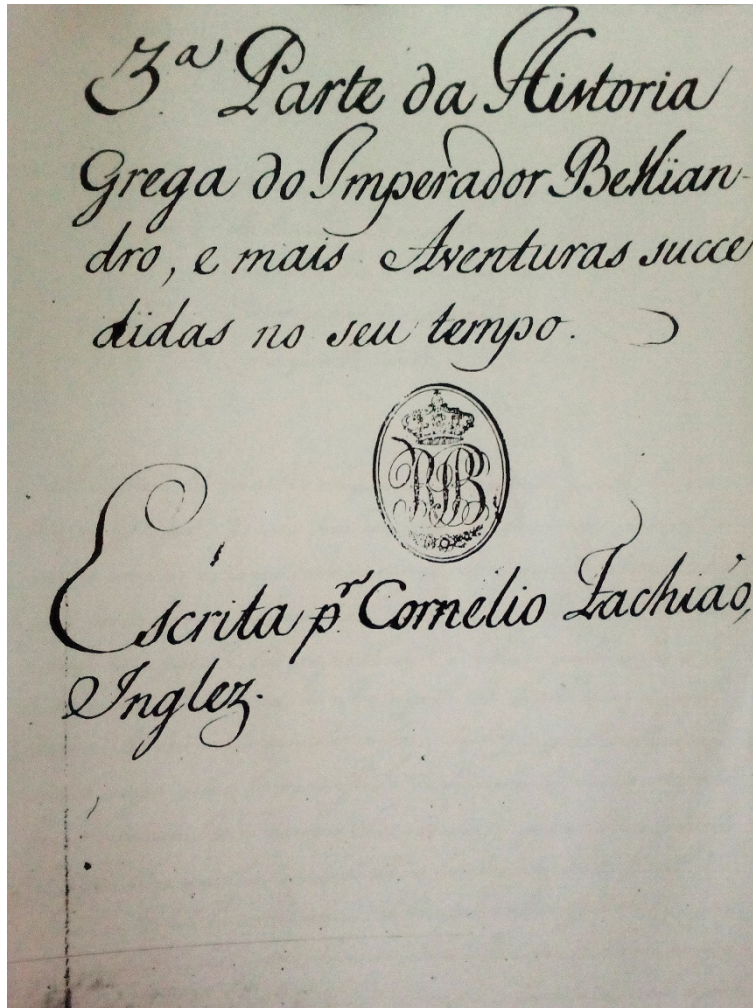 3ª Parte da Historia
Grega do Imperador Bellian-
dro, e mais Aventuras succe
didas no seu tempo.
Escrita pr Cornelio Zachiáo,
Inglez.